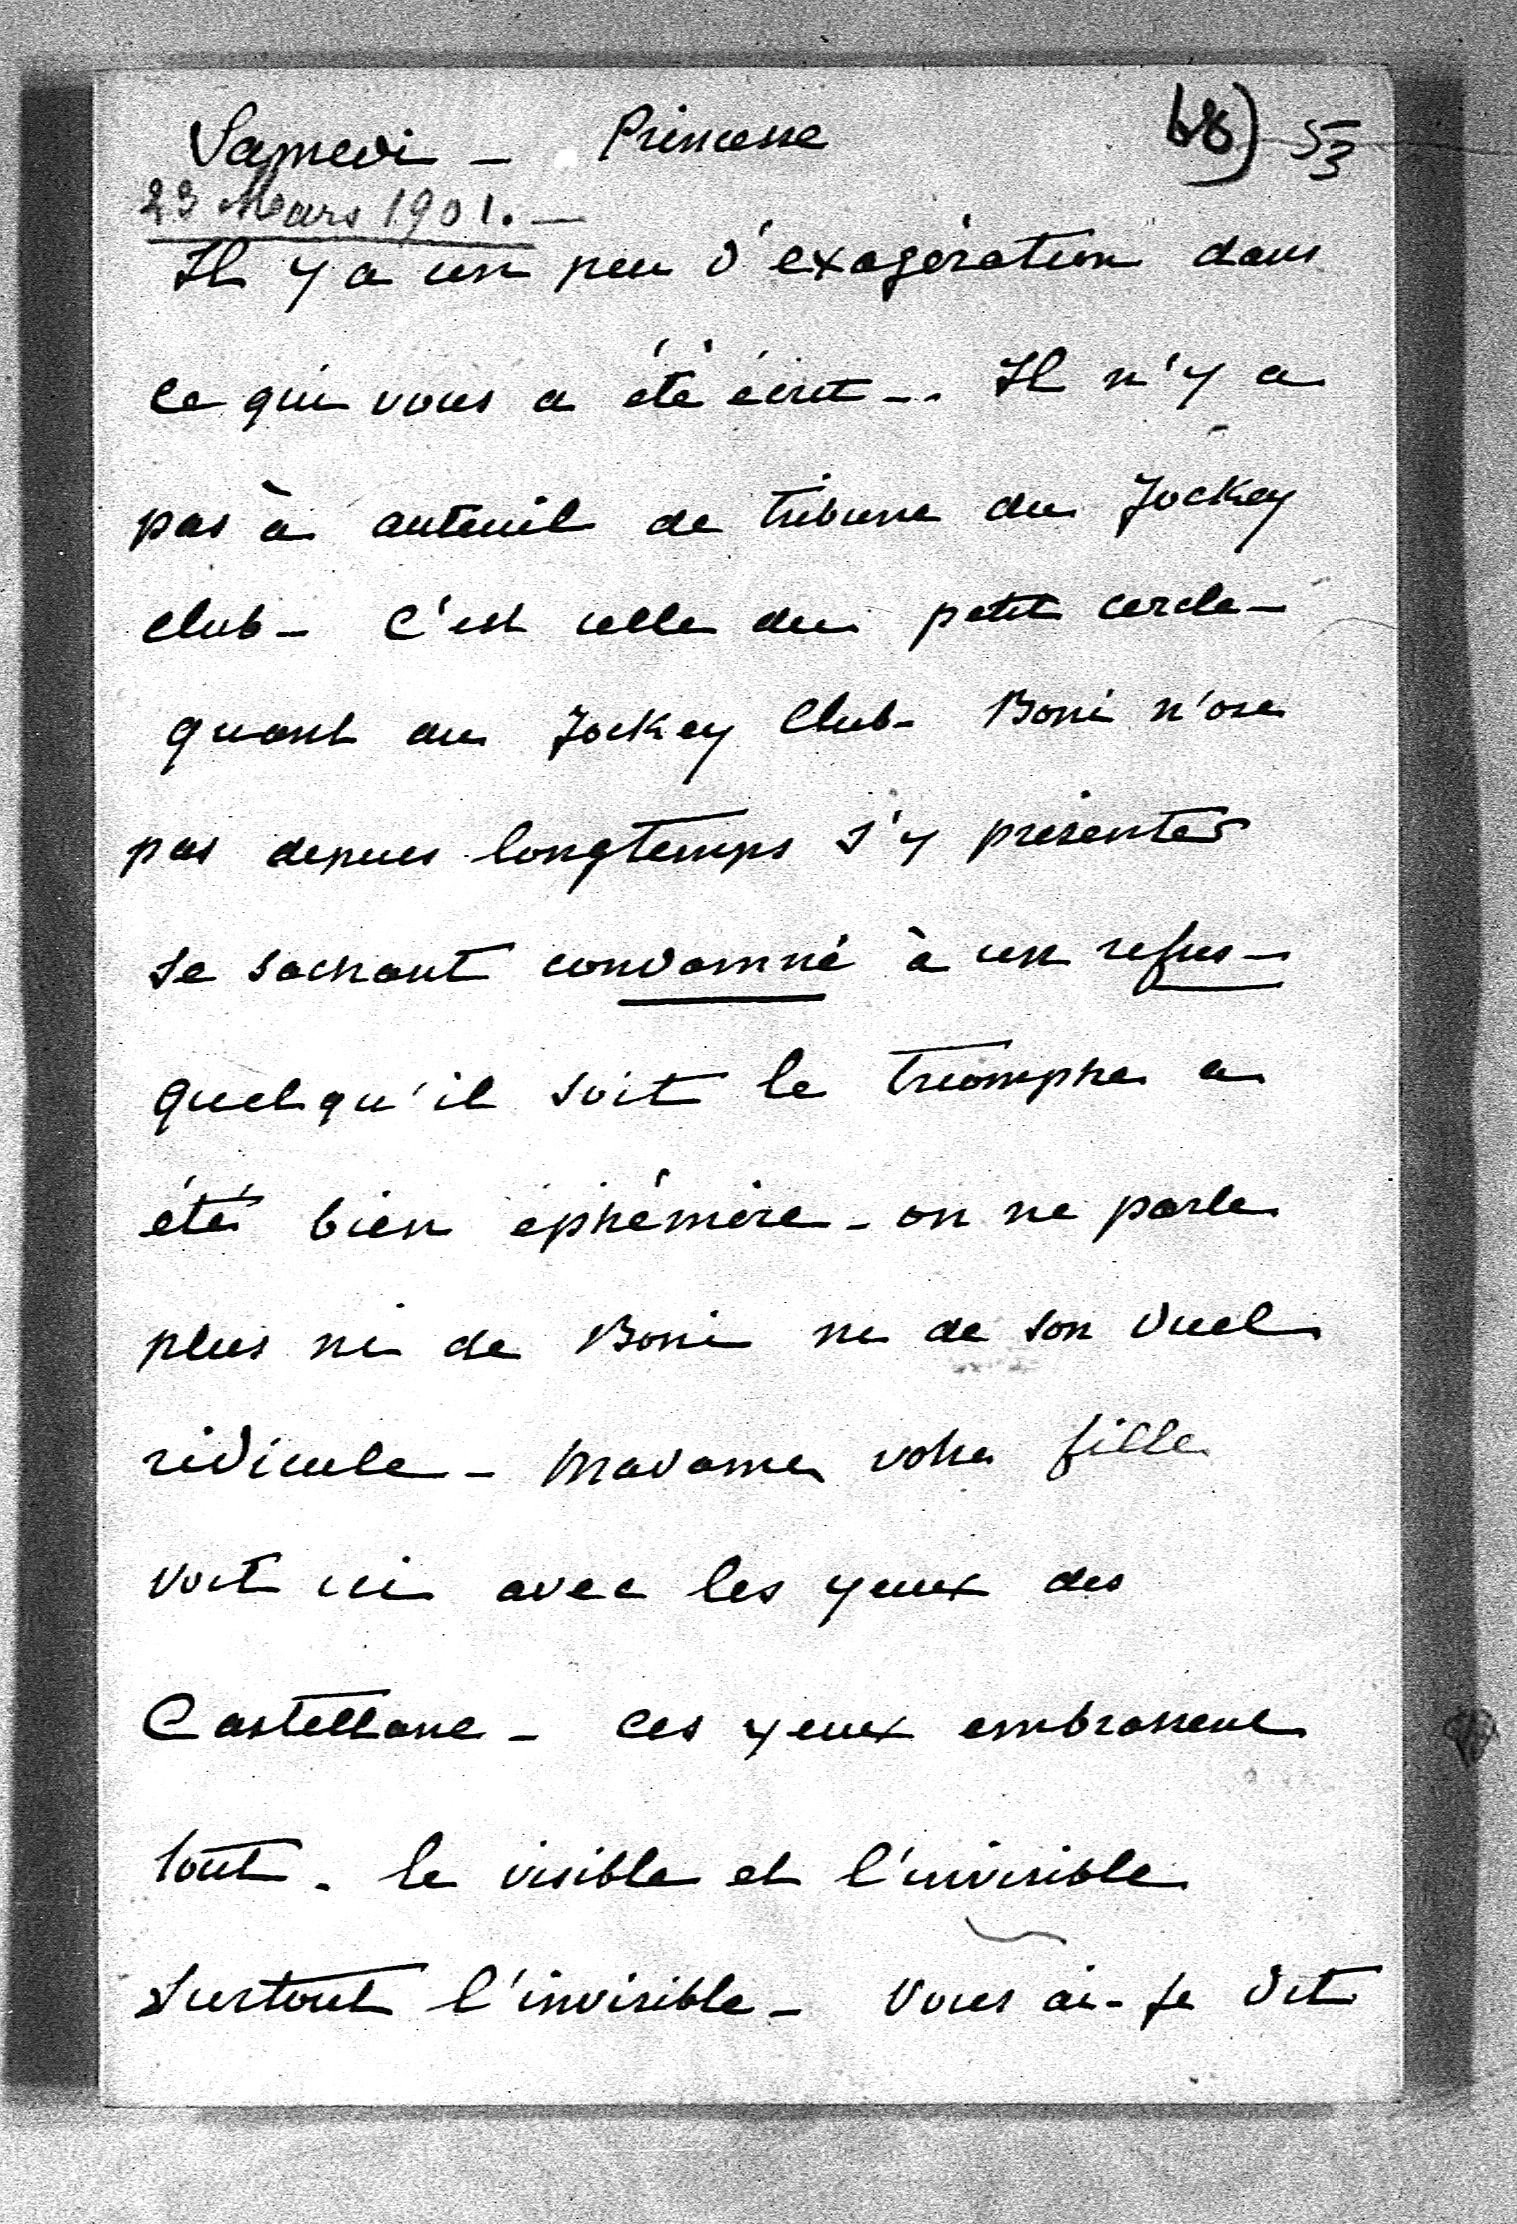 Samedi - Princesse 68) 53
23 Mars 1901. -
Il y a un peu d'exagération dans
ce qui vous a été écrit -. Il n'y a
pas à auteuil de tribune du Jockey
club - C'est celle du petit cercle -
quant au Jockey Club - Boni n'ose
pas depuis longtemps s'y présenter
se sachant condamné à un refus -
quel qu'il soit le triomphe a
été bien éphémère - on ne parle
plus ni de Boni ni de son duel
ridicule - Madame votre fille
voit ici avec les yeux des
Castellane - ces yeux embrassent
tout - le visible et l'invisible
surtout l'invisible - Vous ai-je dit